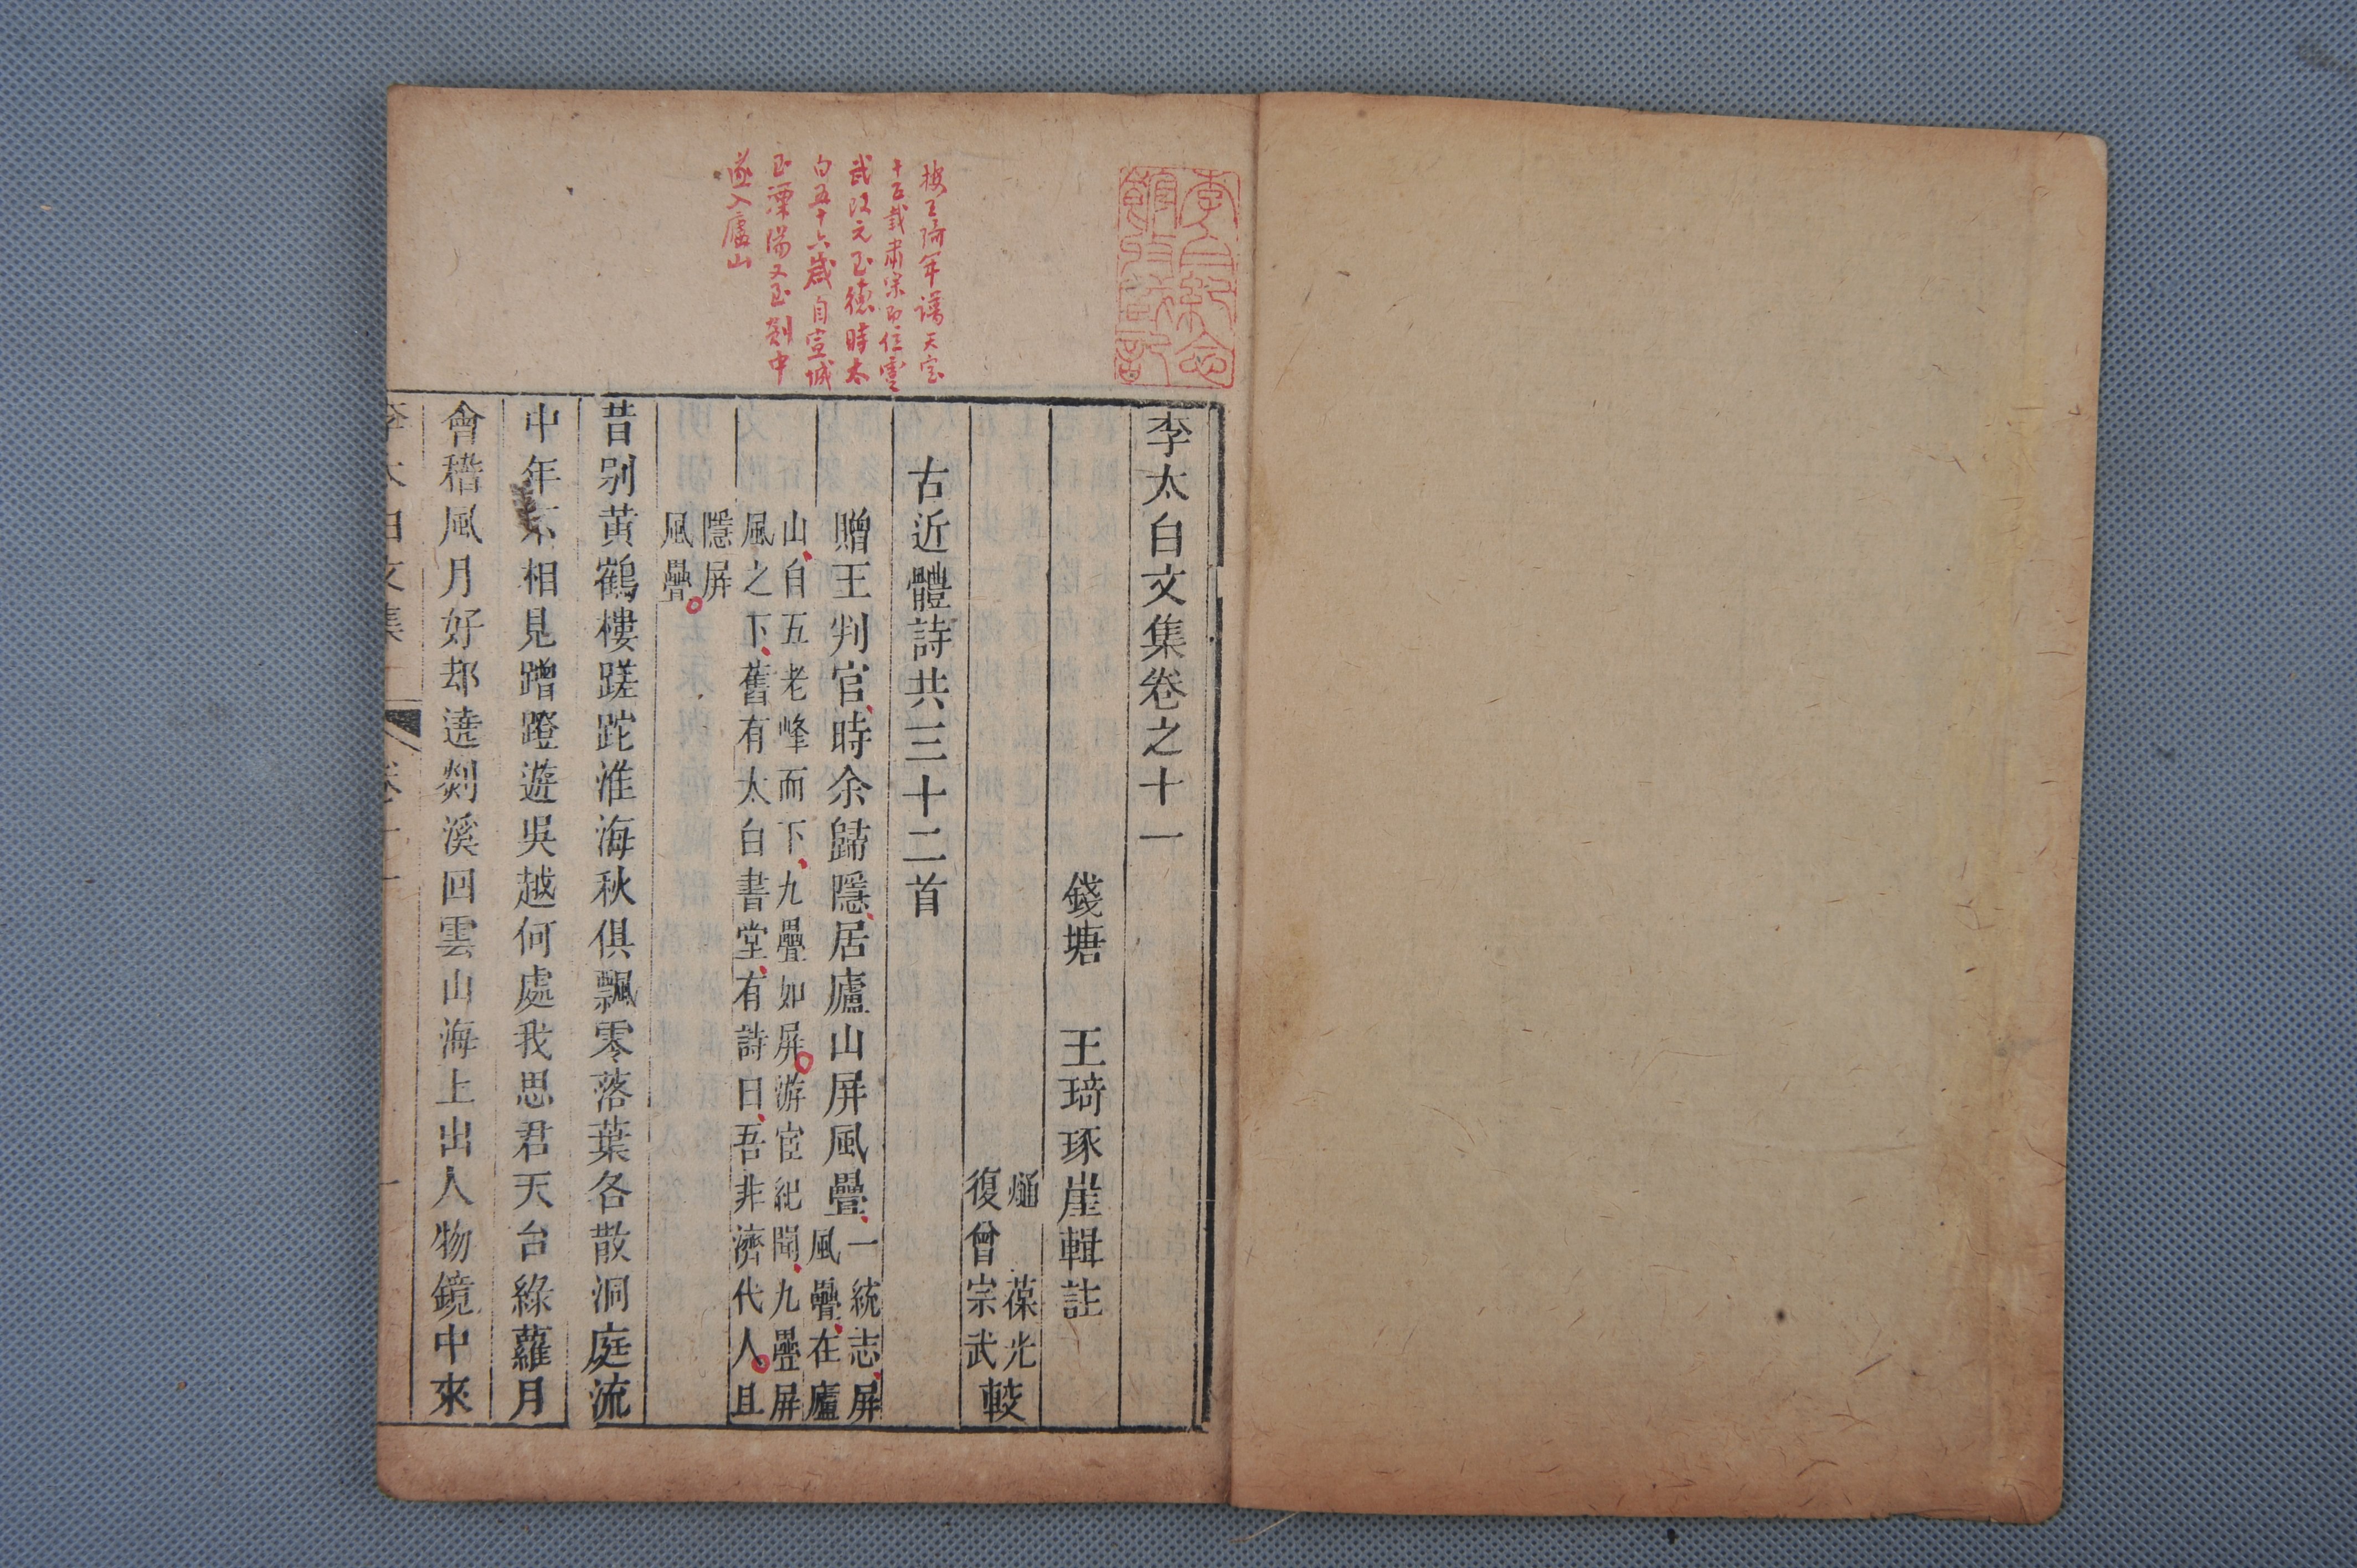 李白紀念
按王琦年譜天宝
十五載肅宗即位靈
武改元至德時太
白五十六歲自宣城
至溧陽又至剡中
遂入廬山
李太白文集卷之十一
錢塘 王琦琢崖輯註
葆光
復曾宗武
較
古近體詩共三十二首
贈王判官、時余歸隱、居廬山屏風疊、
一統志、屏
風疊、在廬
山、自五老峰而下、九疊如屏。游宦紀聞、九疊屏
風之下、舊有太白書堂、有詩曰、吾非濟代人。且
隱屏
風疊。
昔別黃鶴樓蹉跎淮海秋俱飄零落葉各散洞庭流
中年不相見蹭蹬遊吳越何處我思君天台綠蘿月
會稽風月好却遶剡溪回雲山海上出人物鏡中來
李太白文集 卷十一 一